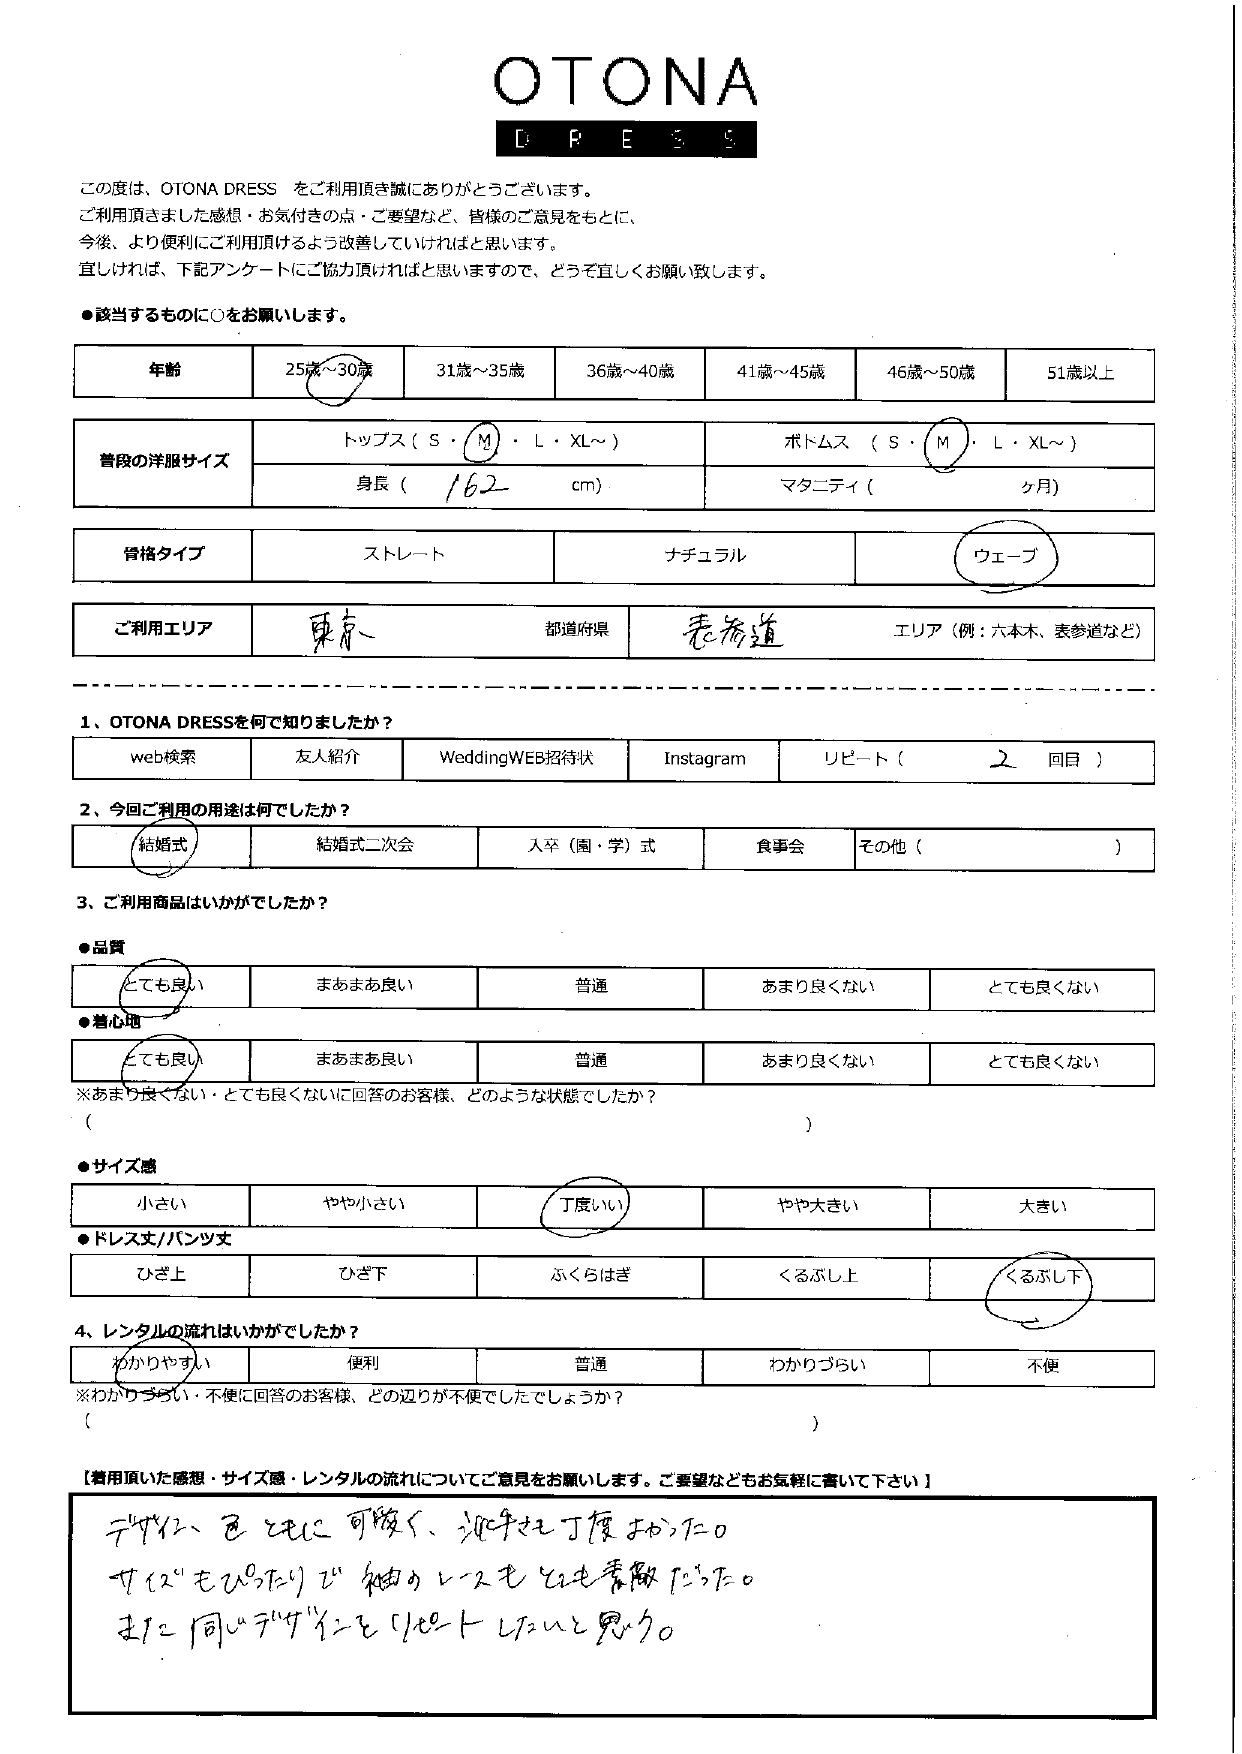 OTONA
DRESS
この度は、OTONA DRESS をご利用頂き誠にありがとうございます。
ご利用頂きました感想・お気付きの点・ご要望など、皆様のご意見をもとに、
今後、より便利にご利用頂けるよう改善していければと思います。
宜しければ、下記アンケートにご協力頂ければと思いますので、どうぞ宜しくお願い致します。
●該当するものに○をお願いします。
年齢 25歳～30歳 31歳～35歳 36歳～40歳 41歳～45歳 46歳～50歳 51歳以上
普段の洋服サイズ トップス ( S ・ M ・ L ・ XL～ ) ボトムス ( S ・ M ・ L ・ XL～ )
身長 ( 162 cm) マタニティ ( ヶ月)
骨格タイプ ストレート ナチュラル ウェーブ
ご利用エリア 東京 都道府県 表参道 エリア（例：六本木、表参道など）
1、OTONA DRESSを何で知りましたか？
web検索 友人紹介 WeddingWEB招待状 Instagram リピート ( 2 回目 )
2、今回ご利用の用途は何でしたか？
結婚式 結婚式二次会 入卒（園・学）式 食事会 その他 ( )
3、ご利用商品はいかがでしたか？
●品質
とても良い まあまあ良い 普通 あまり良くない とても良くない
●着心地
とても良い まあまあ良い 普通 あまり良くない とても良くない
※あまり良くない・とても良くないに回答のお客様、どのような状態でしたか？
( )
●サイズ感
小さい やや小さい 丁度いい やや大きい 大きい
●ドレス丈/パンツ丈
ひざ上 ひざ下 ふくらはぎ くるぶし上 くるぶし下
4、レンタルの流れはいかがでしたか？
わかりやすい 便利 普通 わかりづらい 不便
※わかりづらい・不便に回答のお客様、どの辺りが不便でしたでしょうか？
( )
【着用頂いた感想・サイズ感・レンタルの流れについてご意見をお願いします。ご要望などもお気軽に書いて下さい 】
デザイン、色ともに可愛く、派手さも丁度よかった。
サイズもぴったりで袖のレースもとても素敵だった。
また同じデザインをリピートしたいと思う。